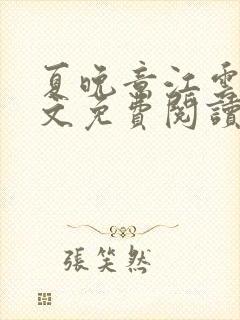 夏晚音江雲
文免費閱讀
張笑然